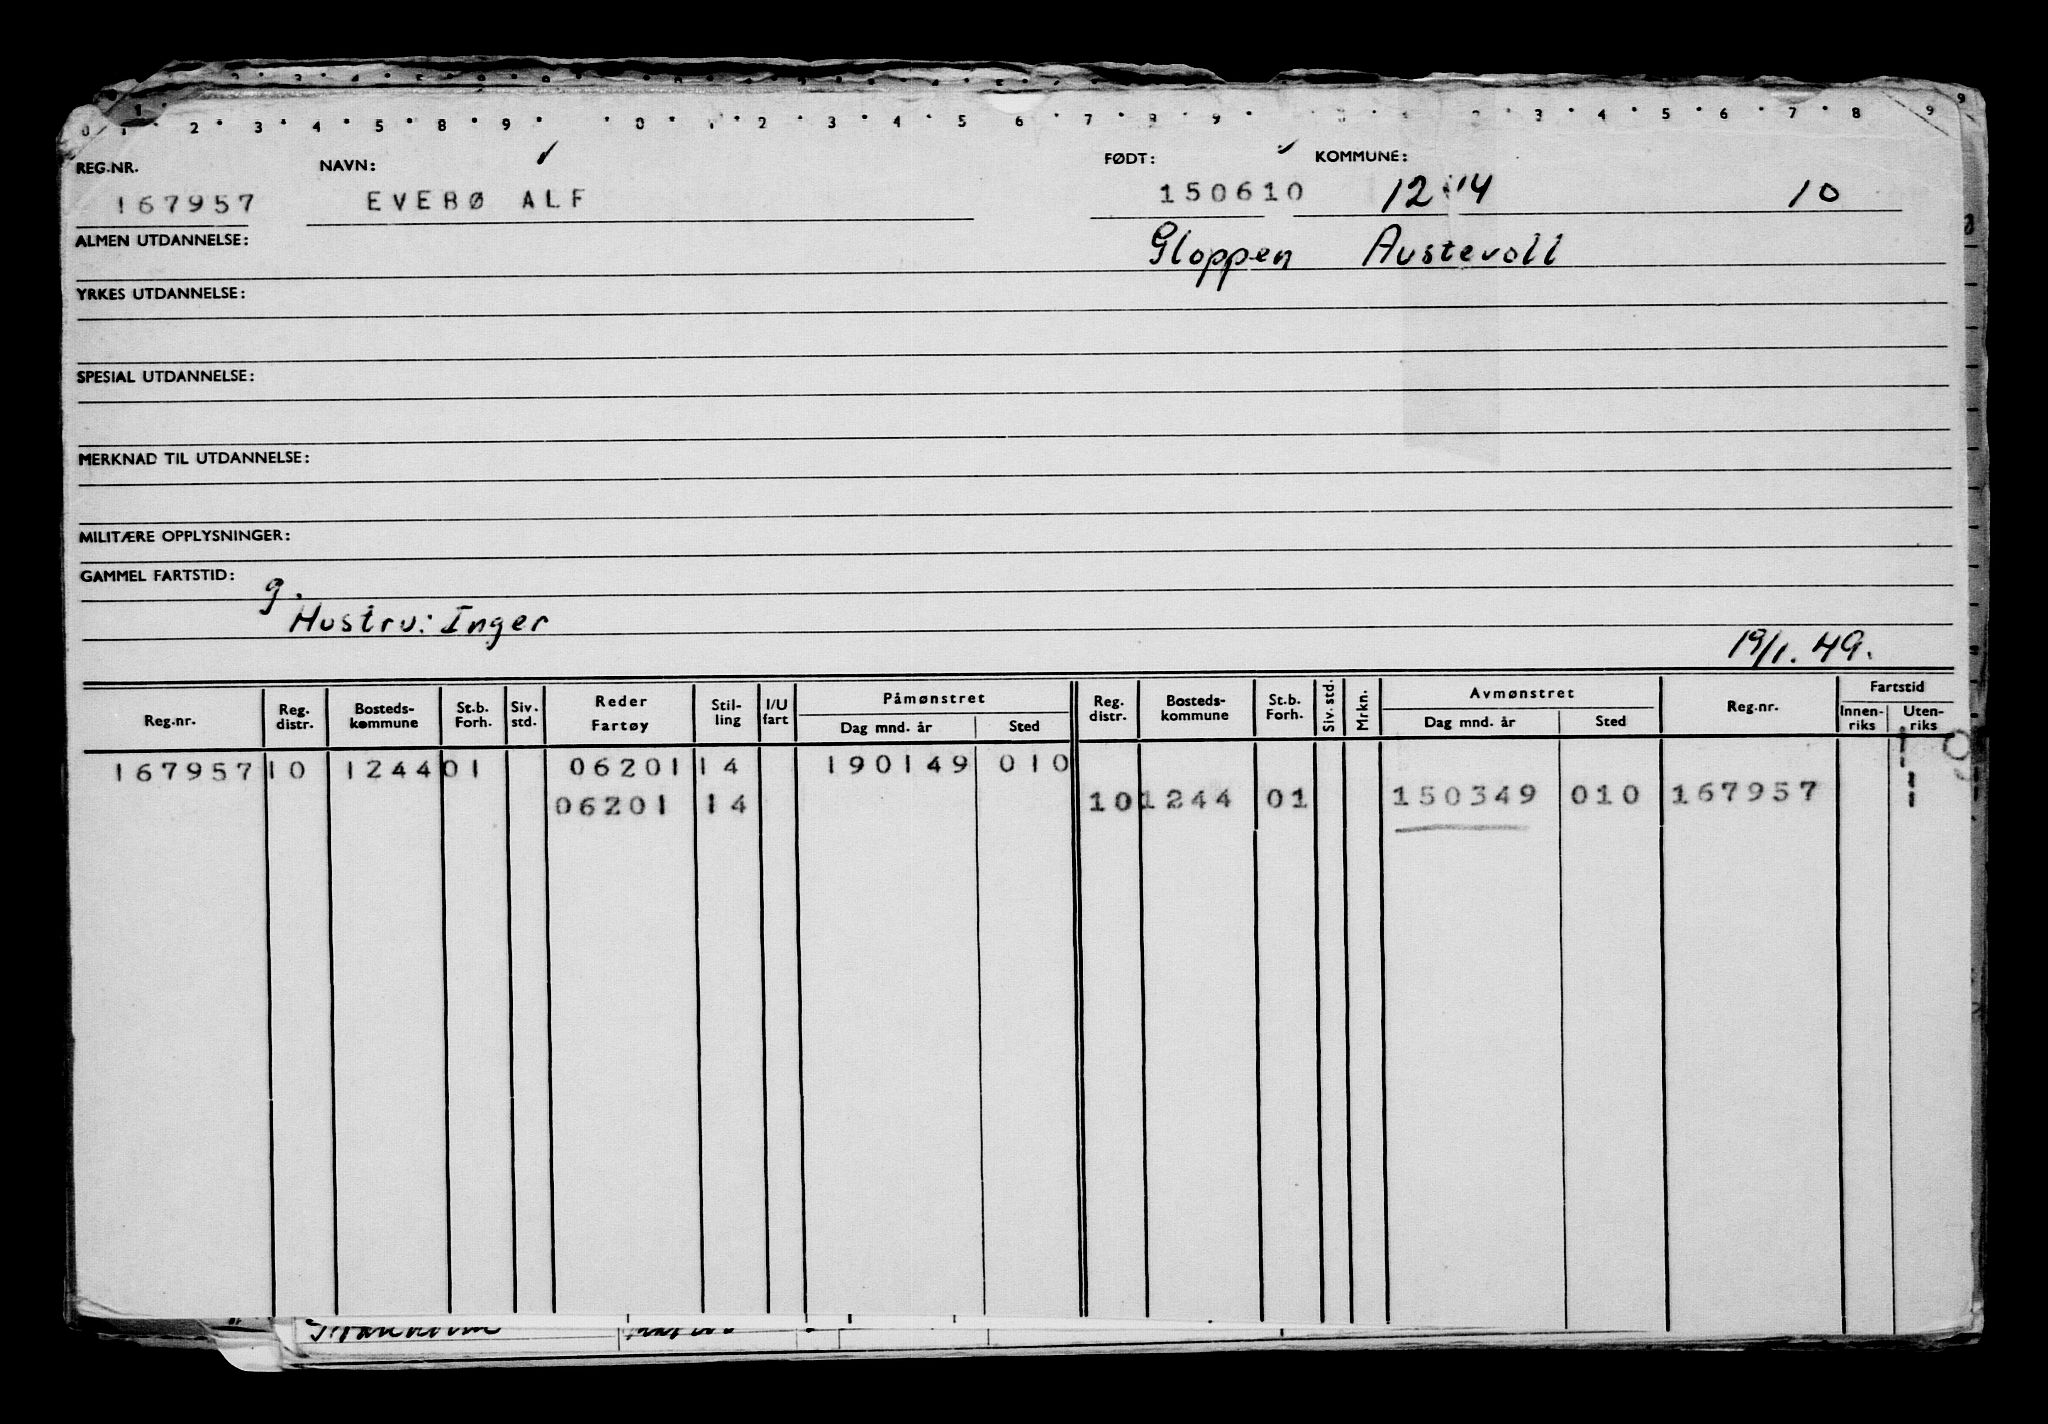 REG.NR. NAVN: FØDT: KOMMUNE:
167957 EVEBØ ALF 150610 12 44 10
ALMEN UTDANNELSE: Gloppen Austevoll
YRKES UTDANNELSE:
SPESIAL UTDANNELSE:
MERKNAD TIL UTDANNELSE:
MILITÆRE OPPLYSNINGER:
GAMMEL FARTSTID:
g.
Hustru: Inger
19/1. 49.
Reg.nr. Reg. distr. Bosteds-kommune St.b. Forh. Siv. std. Reder Fartøy Stil-ling I/U fart Påmønstret Dag mnd. år Sted Reg. distr. Bosteds-kommune St.b. Forh. Siv. std. Mrkn. Avmønstret Dag mnd. år Sted Reg.nr. Fartstid Innen-riks Uten-riks
167957 10 1244 01 06201 14 190149 010
06201 14 10 1244 01 150349 010 167957